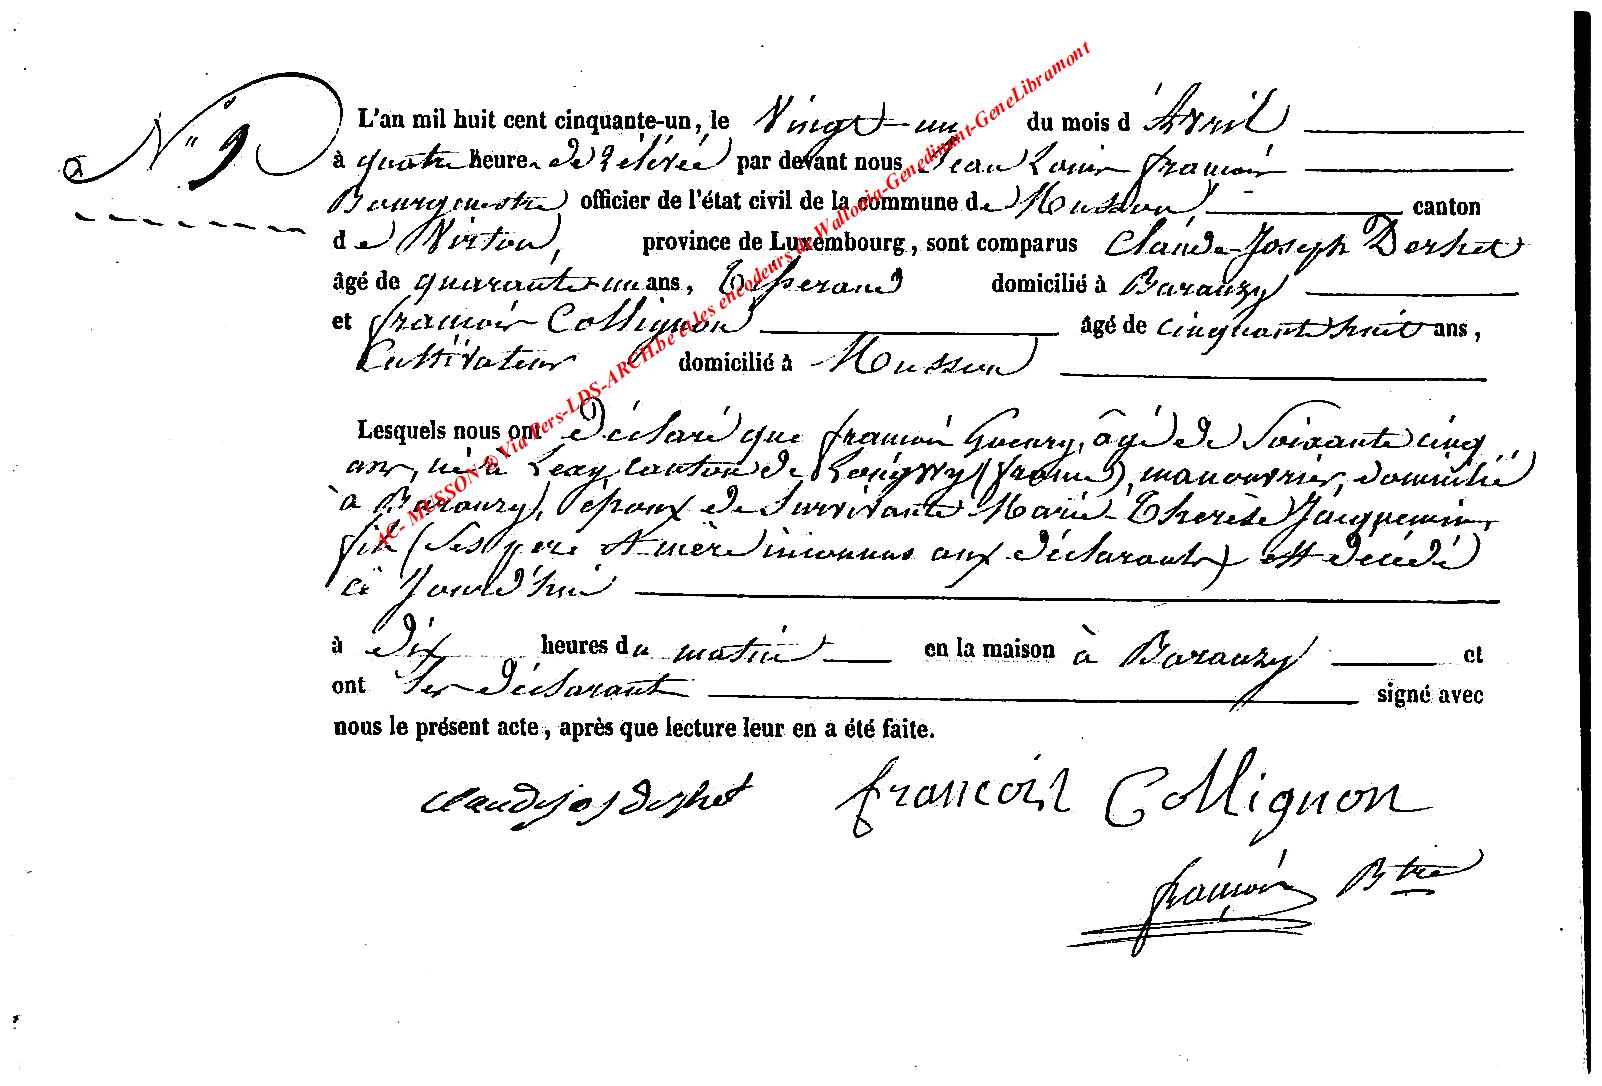 N° 9
L'an mil huit cent cinquante-un, le Vingt-un du mois d'Avril
à quatre heures de Rélévée par devant nous Jean Louis françois
Bourgmestre officier de l'état civil de la commune de Musson canton
de Virton, province de Luxembourg, sont comparus Claude-Joseph Dershet
âgé de quarante-un ans, Tisserand domicilié à Baranzy
et françois Collignon âgé de cinquante huit ans,
Cultivateur domicilié à Musson
Lesquels nous ont déclaré que françois Guenry, âgé de Soixante cinq
ans, né à Lexy canton de Longwy (france), manouvrier, domicilié
à Baranzy, époux de Survivante Marie-Therèse Jacquemin,
fils (ses pere et mère inconnus aux déclarants) est décédé
ce Jourd'hui
à dix heures du matin en la maison à Baranzy et
ont les déclarants signé avec
nous le présent acte, après que lecture leur en a été faite.
claudejos dershet françois Collignon
françois Btre
AC- MUSSON ® Via Pers-LDS-ARCH.be et les encodeurs de Wallonia-Genedinant-GeneLibramont